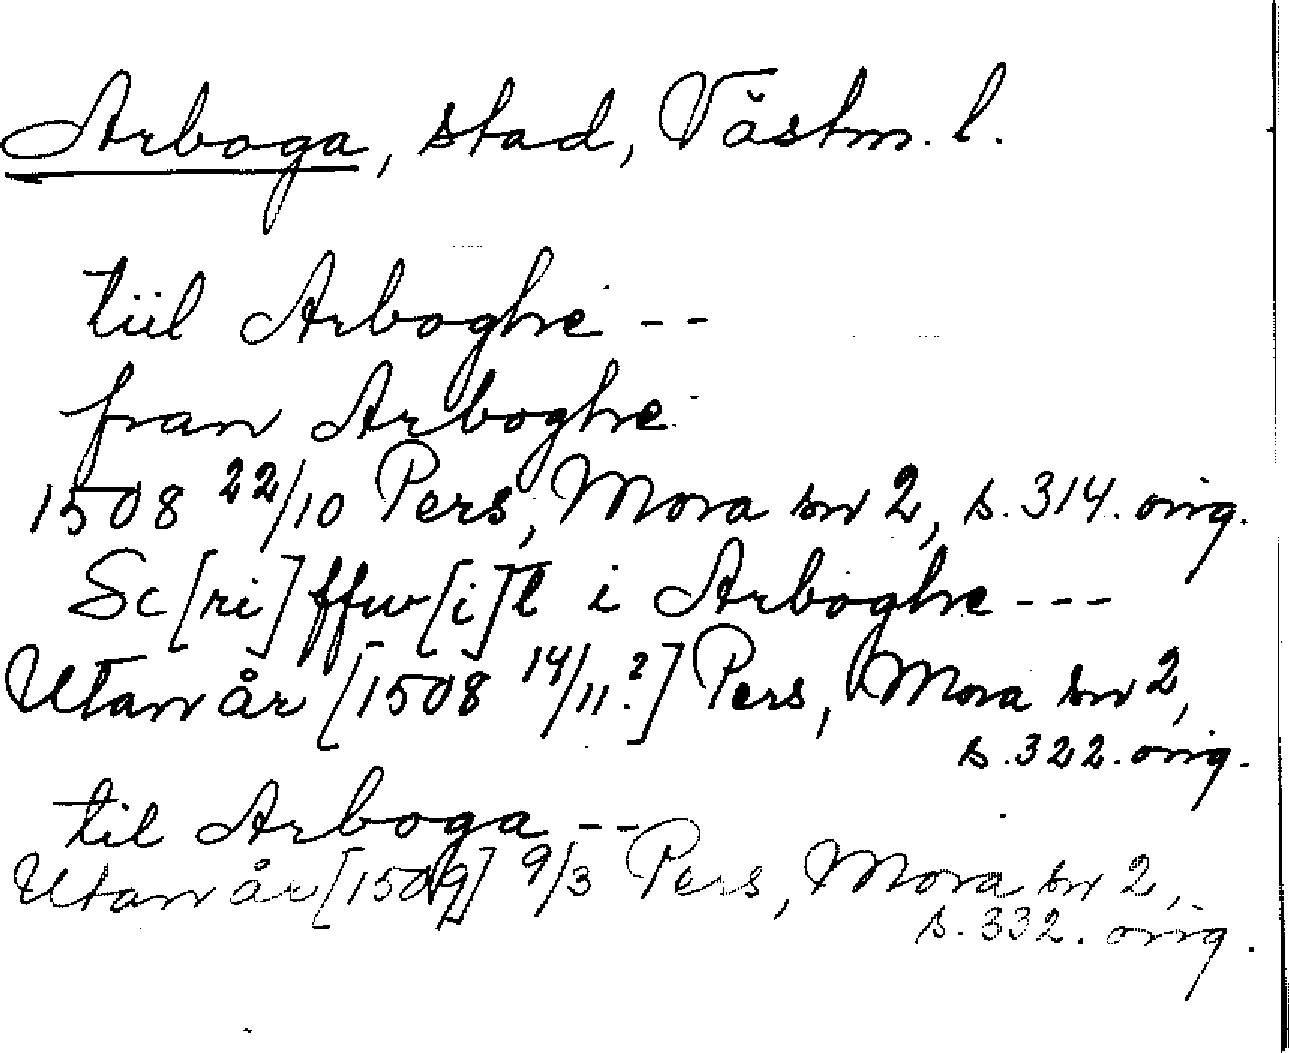 Arboga, stad, Västm. l.
tiil Arboghe --
fran Arboghe
1508 22/10 Pers, Mora sn 2, s. 314. orig.
Sc[ri]ffw[i]t i Arboghe ---
Utan år [1508 14/11.?] Pers, Mora sn 2,
s. 322. orig.
til Arboga --
Utan år [1509] 9/3 Pers, Mora sn 2,
s. 332. orig.